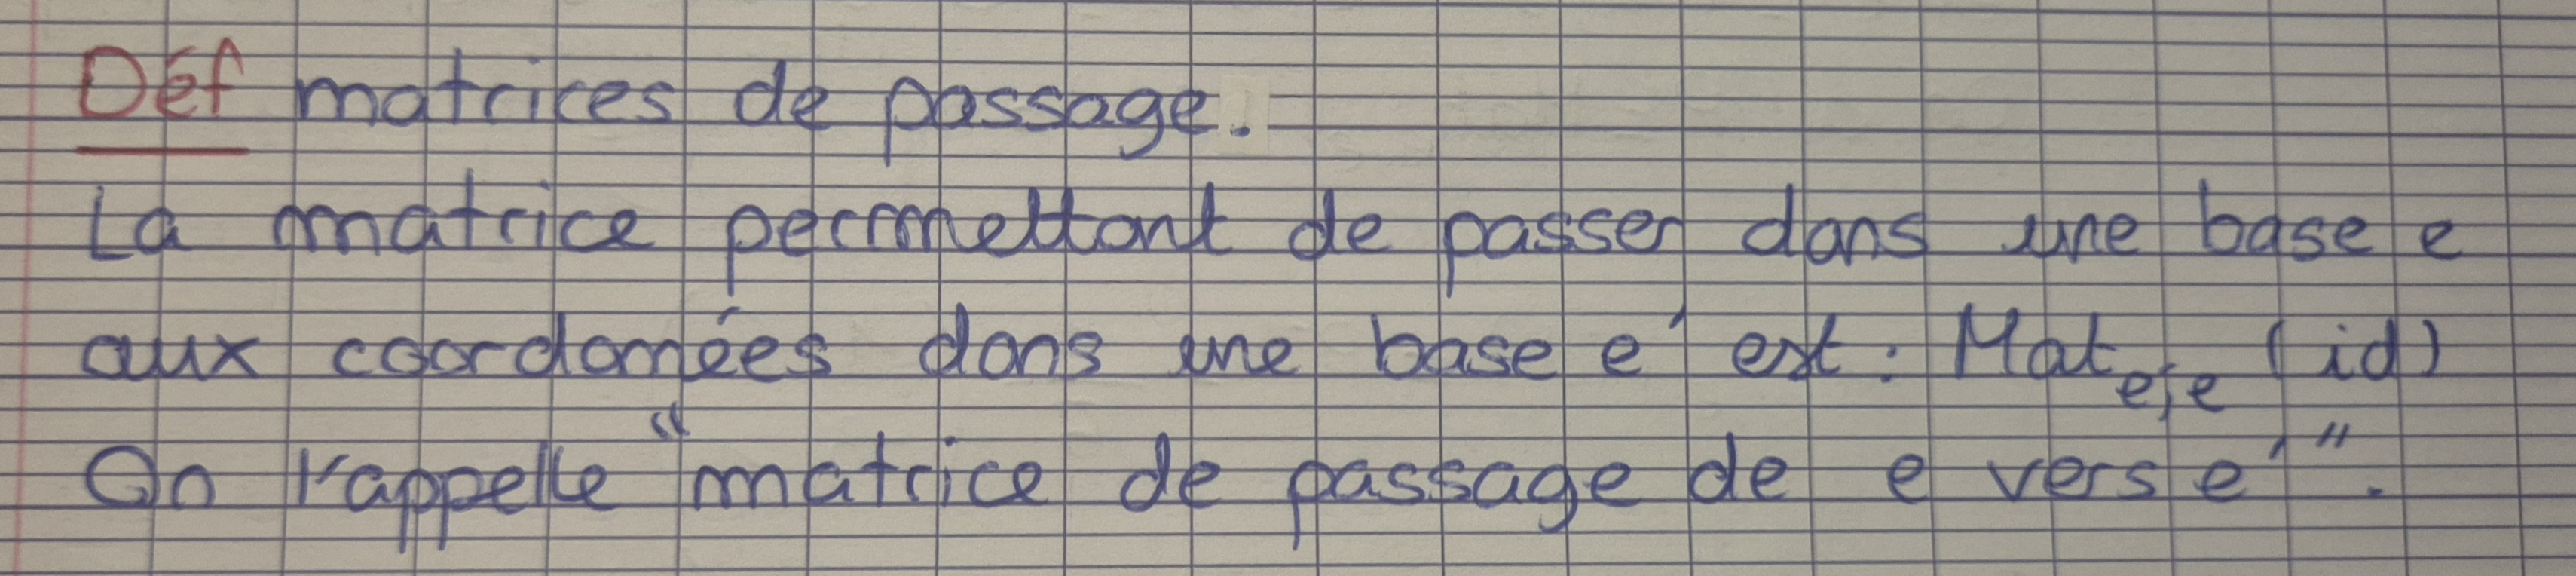 Déf matrices de passage.
La matrice permettant de passer dans une base e
aux coordonnées dans une base e' est : Mat e,e (id)
On l'appelle "matrice de passage de e vers e'".